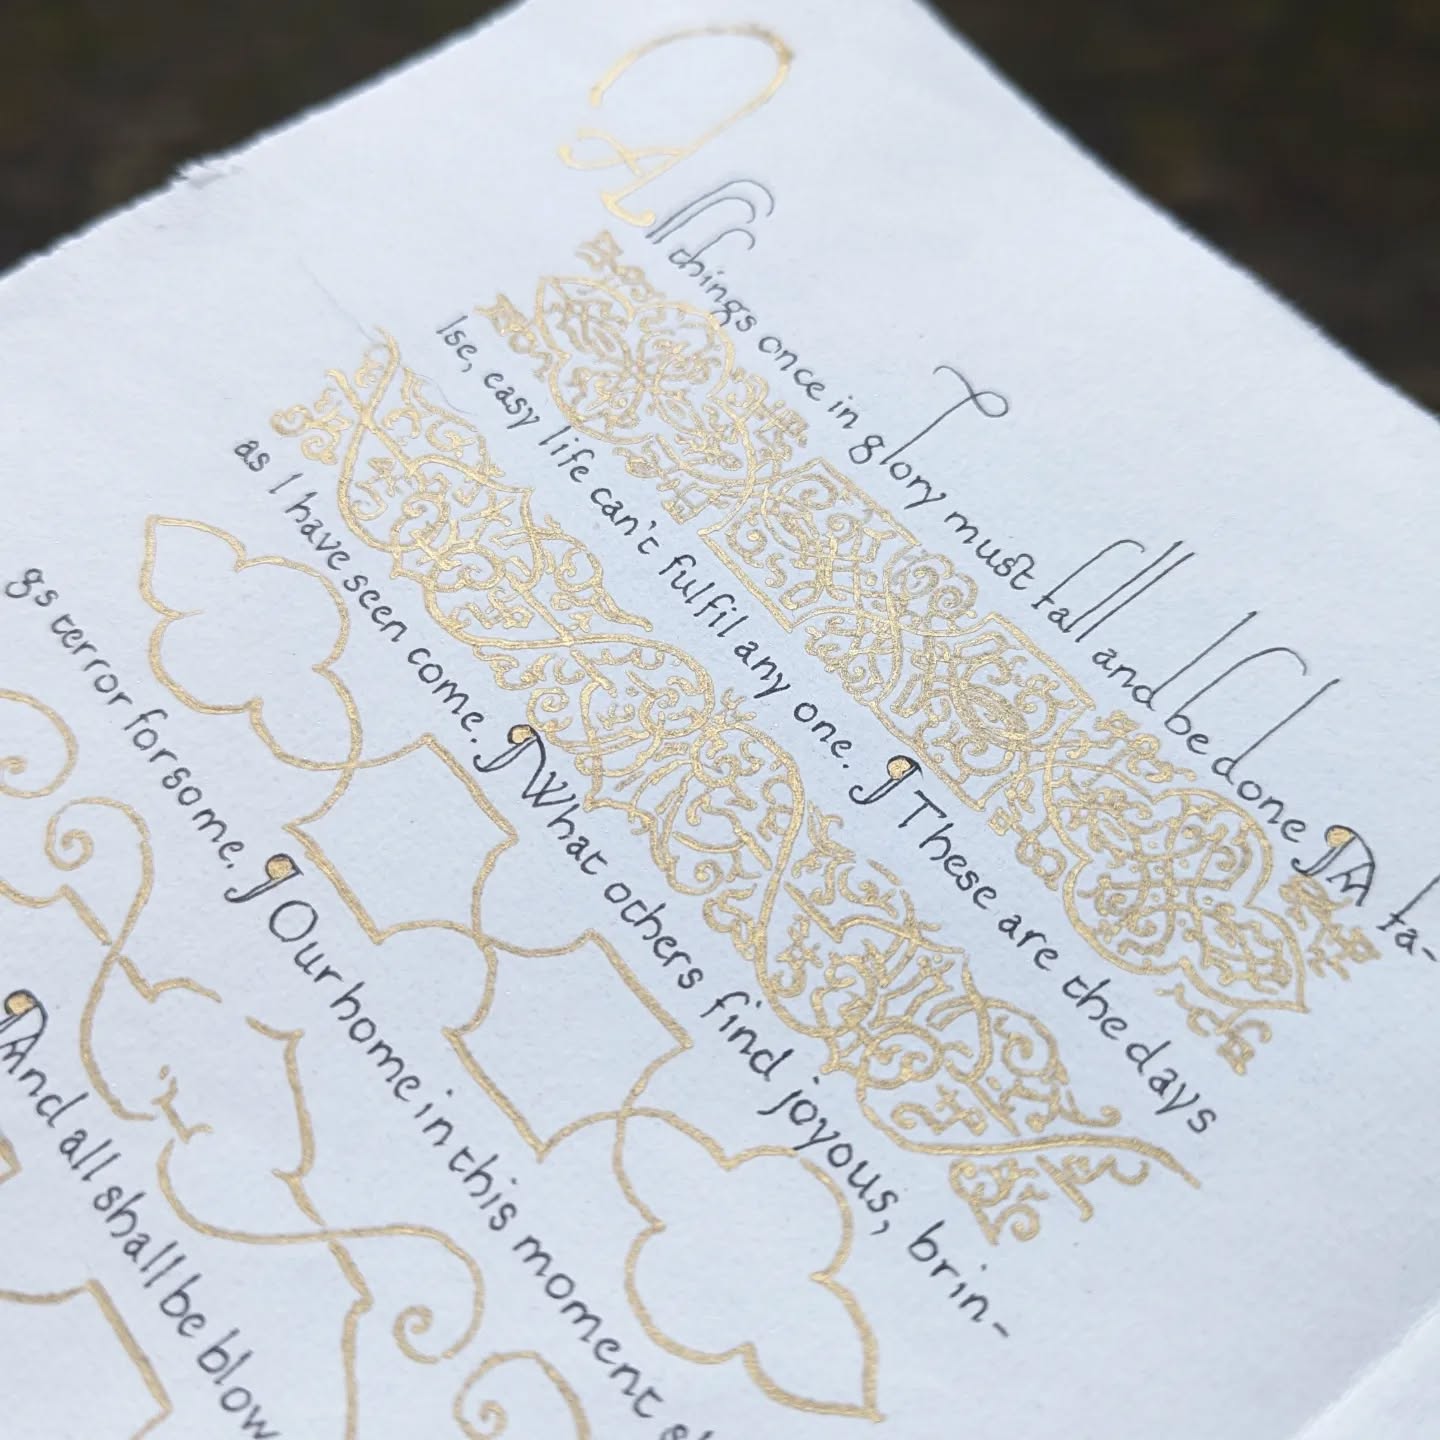 All things once in glory must fall and be done ¶ A fa-
lse, easy life can't fulfil any one. ¶ These are the days
as I have seen come. ¶ What others find joyous, brin-
gs terror for some. ¶ Our home in this moment
¶ And all shall be blow